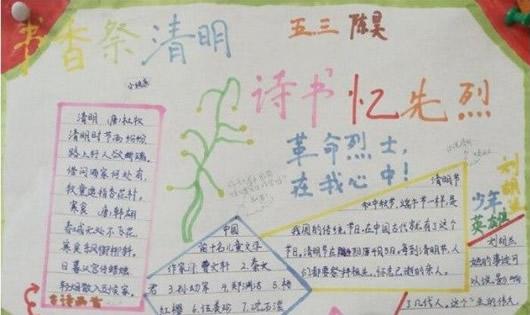 书香祭清明
五三 陈昊
诗书忆先烈
革命烈士,
在我心中!
清明 唐·杜牧
清明时节雨纷纷
路上行人欲断魂
借问酒家何处有,
牧童遥指杏花村。
寒食 唐·韩翃
春城无处不飞花
寒食东风御柳斜
日暮汉宫传蜡烛
轻烟散入五侯家。
古诗两首
中国
前十名儿童文学
作家:1.曹文轩 2.秦文
君 3.孙幼军 4.郑渊洁 5.杨
红樱 6.伍美珍 7.沈石溪
清明节
和中秋节、这个节一样,是
我国的传统节日,在中国古代就有了这个
节日。清明节在4月5日,每到清明节,人
们都要祭拜祖先,怀念已逝的亲人。
少年
英雄
刘胡兰
刘胡兰
她的事迹可
以说是
了几代人,这个